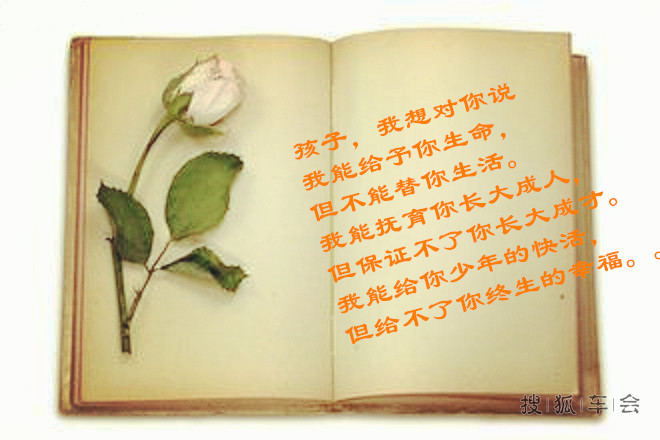 孩子，我想对你说
我能给予你生命，
但不能替你生活。
我能抚育你长大成人，
但保证不了你长大成才。
我能给你少年的快活，
但给不了你终生的幸福。。
搜|狐|车|会